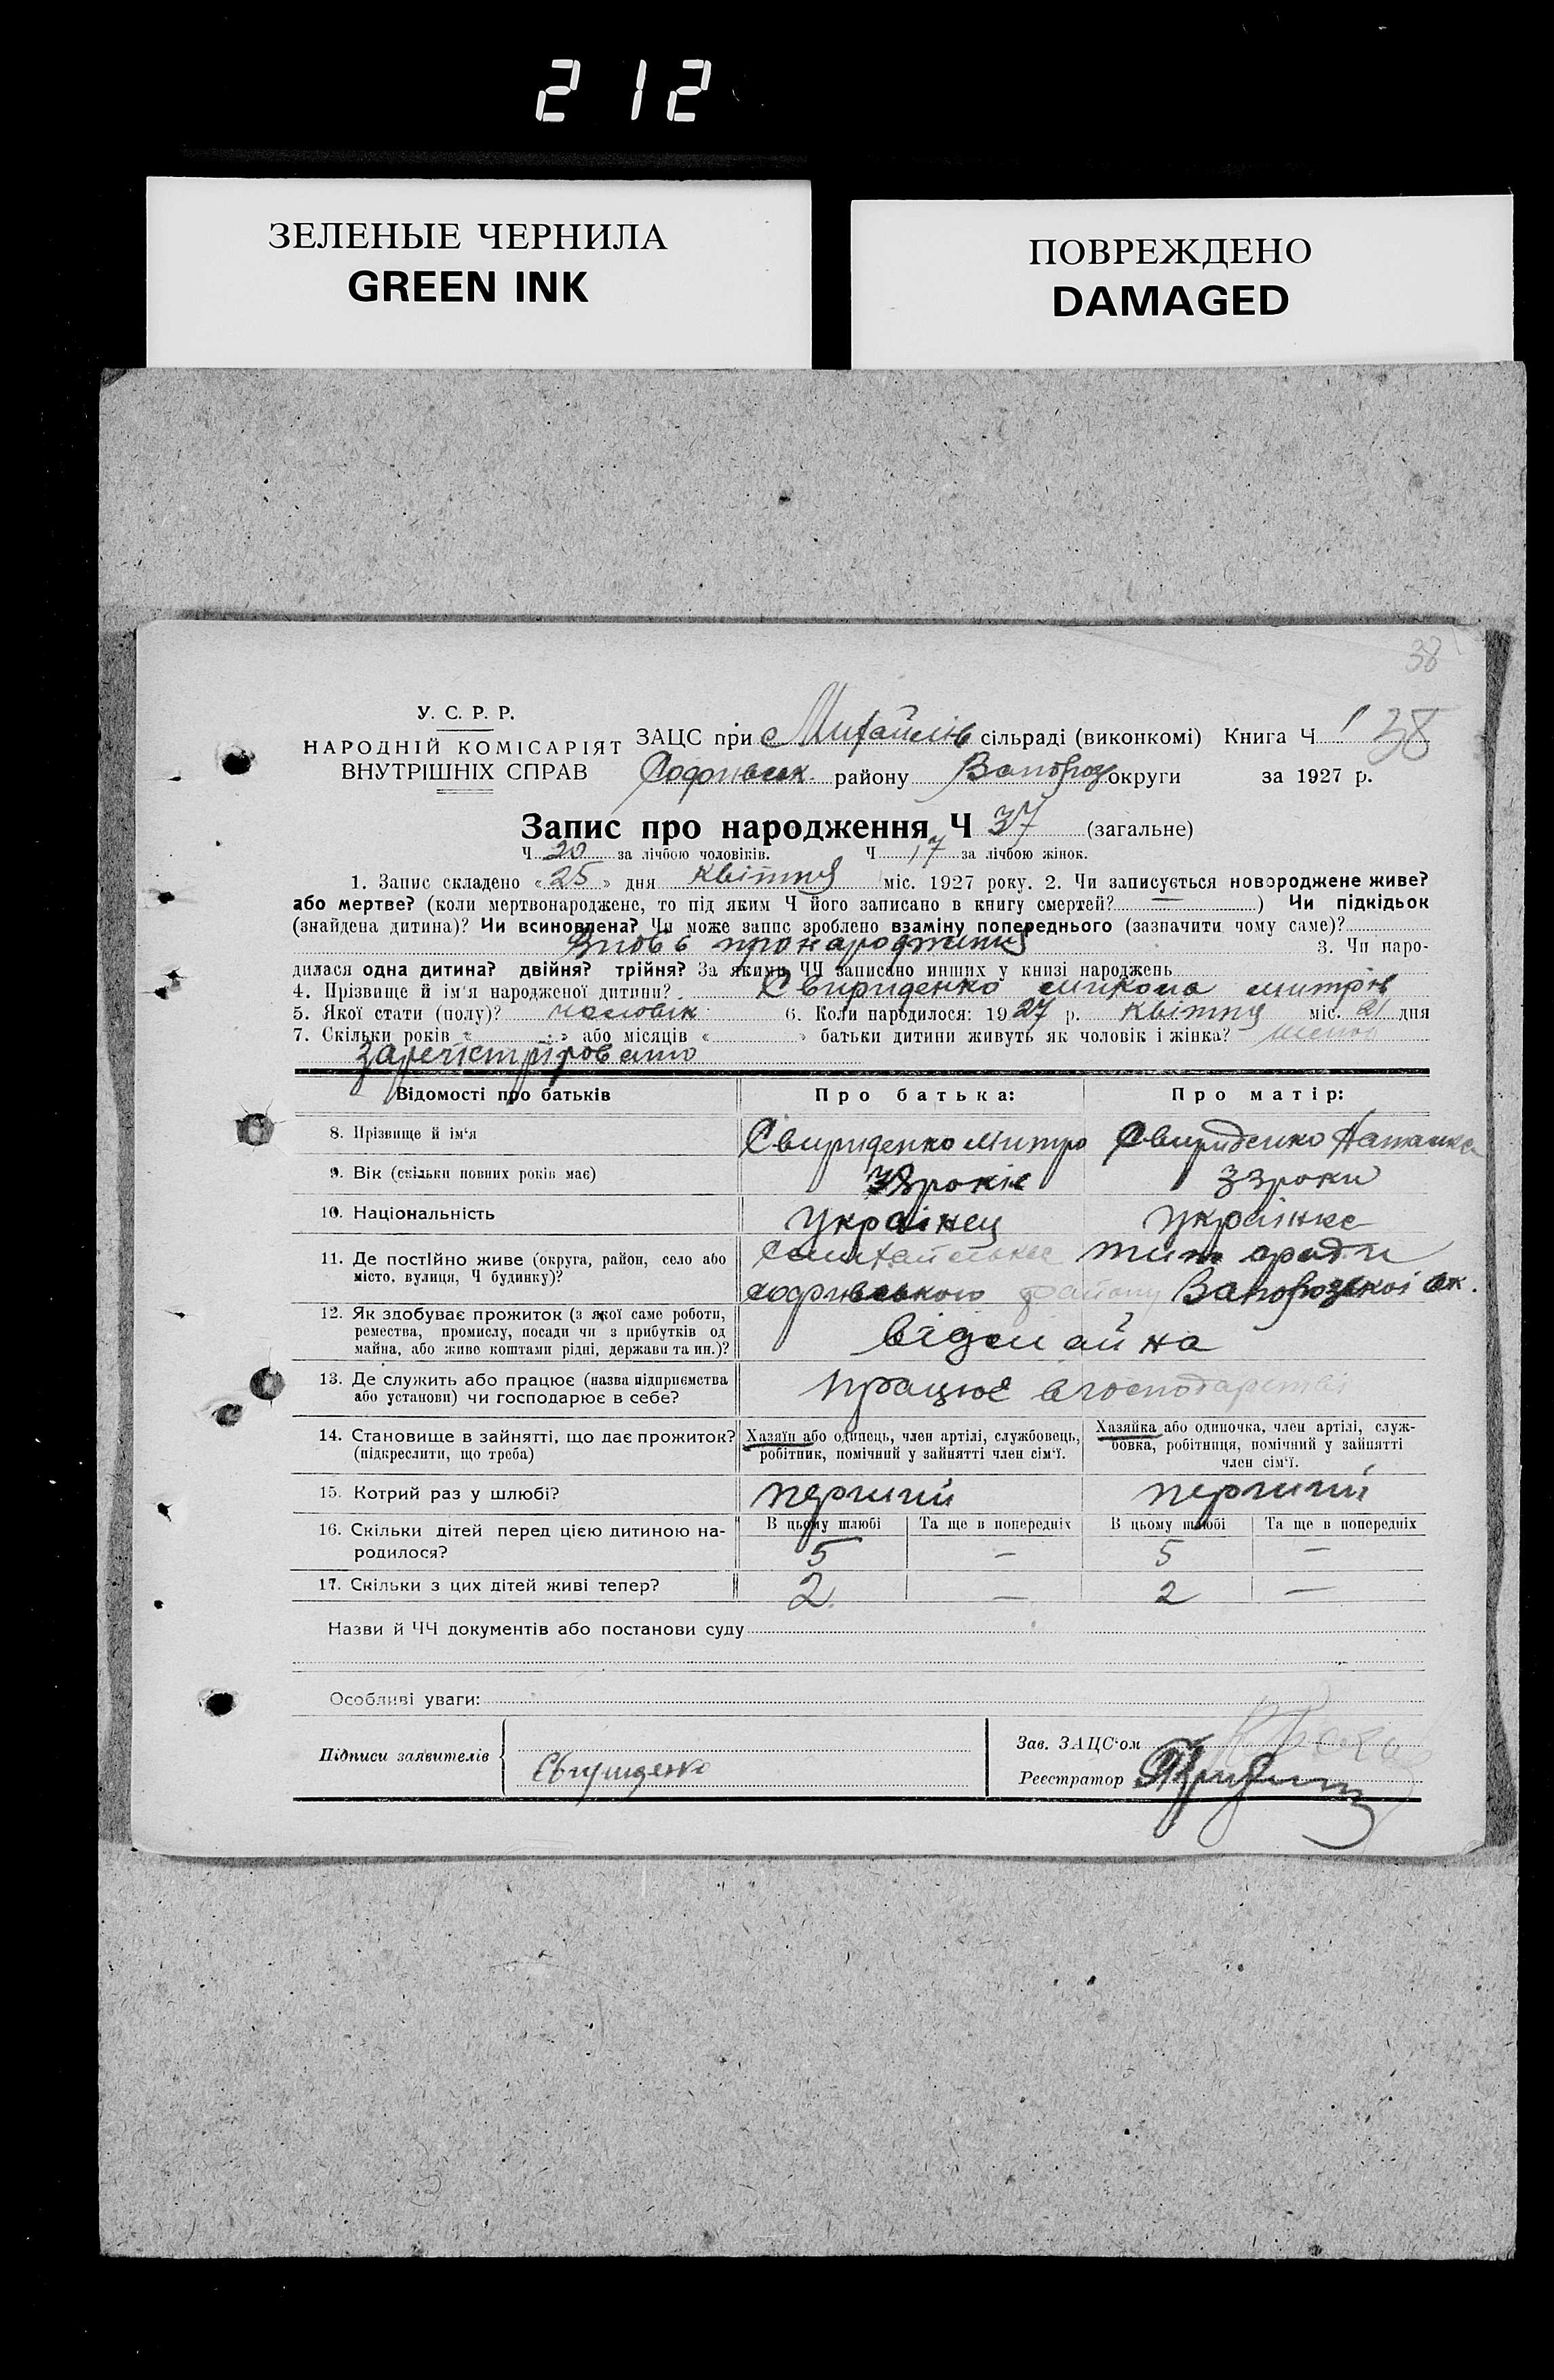 212
ЗЕЛЕНЫЕ ЧЕРНИЛА
GREEN INK
ПОВРЕЖДЕНО
DAMAGED
38
У. С. Р. Р.
НАРОДНІЙ КОМІСАРІЯТ
ВНУТРІШНІХ СПРАВ
ЗАЦС при с Михайлів сільраді (виконкомі) Книга Ч 1 38
району Запороз округи за 1927 р.
Запис про народження Ч 37 (загальне)
Ч 20 за лічбою чоловіків. Ч 17 за лічбою жінок.
1. Запис складено «25» дня Квітня міс. 1927 року. 2. Чи записується новороджене живе?
або мертве? (коли мертвонароджене, то під яким Ч його записано в книгу смертей? —) Чи підкідьок
(знайдена дитина)? Чи всиновлена? Чи може запис зроблено взаміну попереднього (зазначити чому саме)?
3. Чи наро-
дилася одна дитина? двійня? трійня? За якими ЧЧ записано инших у книзі народжень
4. Прізвище й ім'я народженої дитини? Свириденко микола митрів
5. Якої стати (полу)? чоловік 6. Коли народилося: 1927 р. Квітня міс. 21 дня
7. Скільки років « » або місяців « » батьки дитини живуть як чоловік і жінка?
Відомості про батьків Про батька: Про матір:
8. Прізвище й ім'я Свириденко Митро Свириденко Наталка
9. Вік (скільки повних років має) 38 років 33 роки
10. Національність Українец Українка
11. Де постійно живе (округа, район, село або
місто, вулиця, Ч будинку)? району Запорозької ок.
12. Як здобуває прожиток (з якої саме роботи,
ремества, промислу, посади чи з прибутків од
майна, або живе коштами рідні, держави та ин.)? від майна
13. Де служить або працює (назва підприємства
або установи) чи господарює в себе? працює в господарстві
14. Становище в зайнятті, що дає прожиток? Хазяїн або одинець, член артілі, службовець, Хазяйка або одиночка, член артілі, служ-
(підкреслити, що треба) робітник, помічний у зайнятті член сім'ї. бовка, робітниця, помічний у зайнятті
член сім'ї.
15. Котрий раз у шлюбі? перший перший
16. Скільки дітей перед цією дитиною на- В цьому шлюбі Та ще в попередніх В цьому шлюбі Та ще в попередніх
родилося? 5 — 5 —
17. Скільки з цих дітей живі тепер? 2 — 2 —
Назви й ЧЧ документів або постанови суду
Особливі уваги:
Підписи заявителів Свириденко
Зав. ЗАЦС'ом
Реєстратор